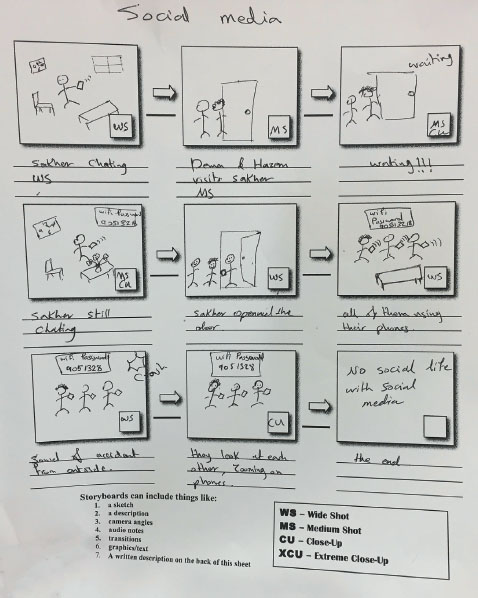 Social media
WS
MS
waiting
MS
CU
Sakher Chating
WS
Dana & Hazem
visits sakher
MS
waiting!!!
wifi Password
90513218
MS
CU
WS
wifi
Password
90513218
WS
Sakher still
chating
sakher openned the
door
all of them using
their phones.
wifi Password
9051328
WS
wifi Password
9051328
CU
No social life
with social
media
Sound of accident
from outside.
they look at each
other, Zooming on
phones.
the end
Storyboards can include things like:
1. a sketch
2. a description
3. camera angles
4. audio notes
5. transitions
6. graphics/text
7. A written description on the back of this sheet
WS – Wide Shot
MS – Medium Shot
CU – Close-Up
XCU – Extreme Close-Up